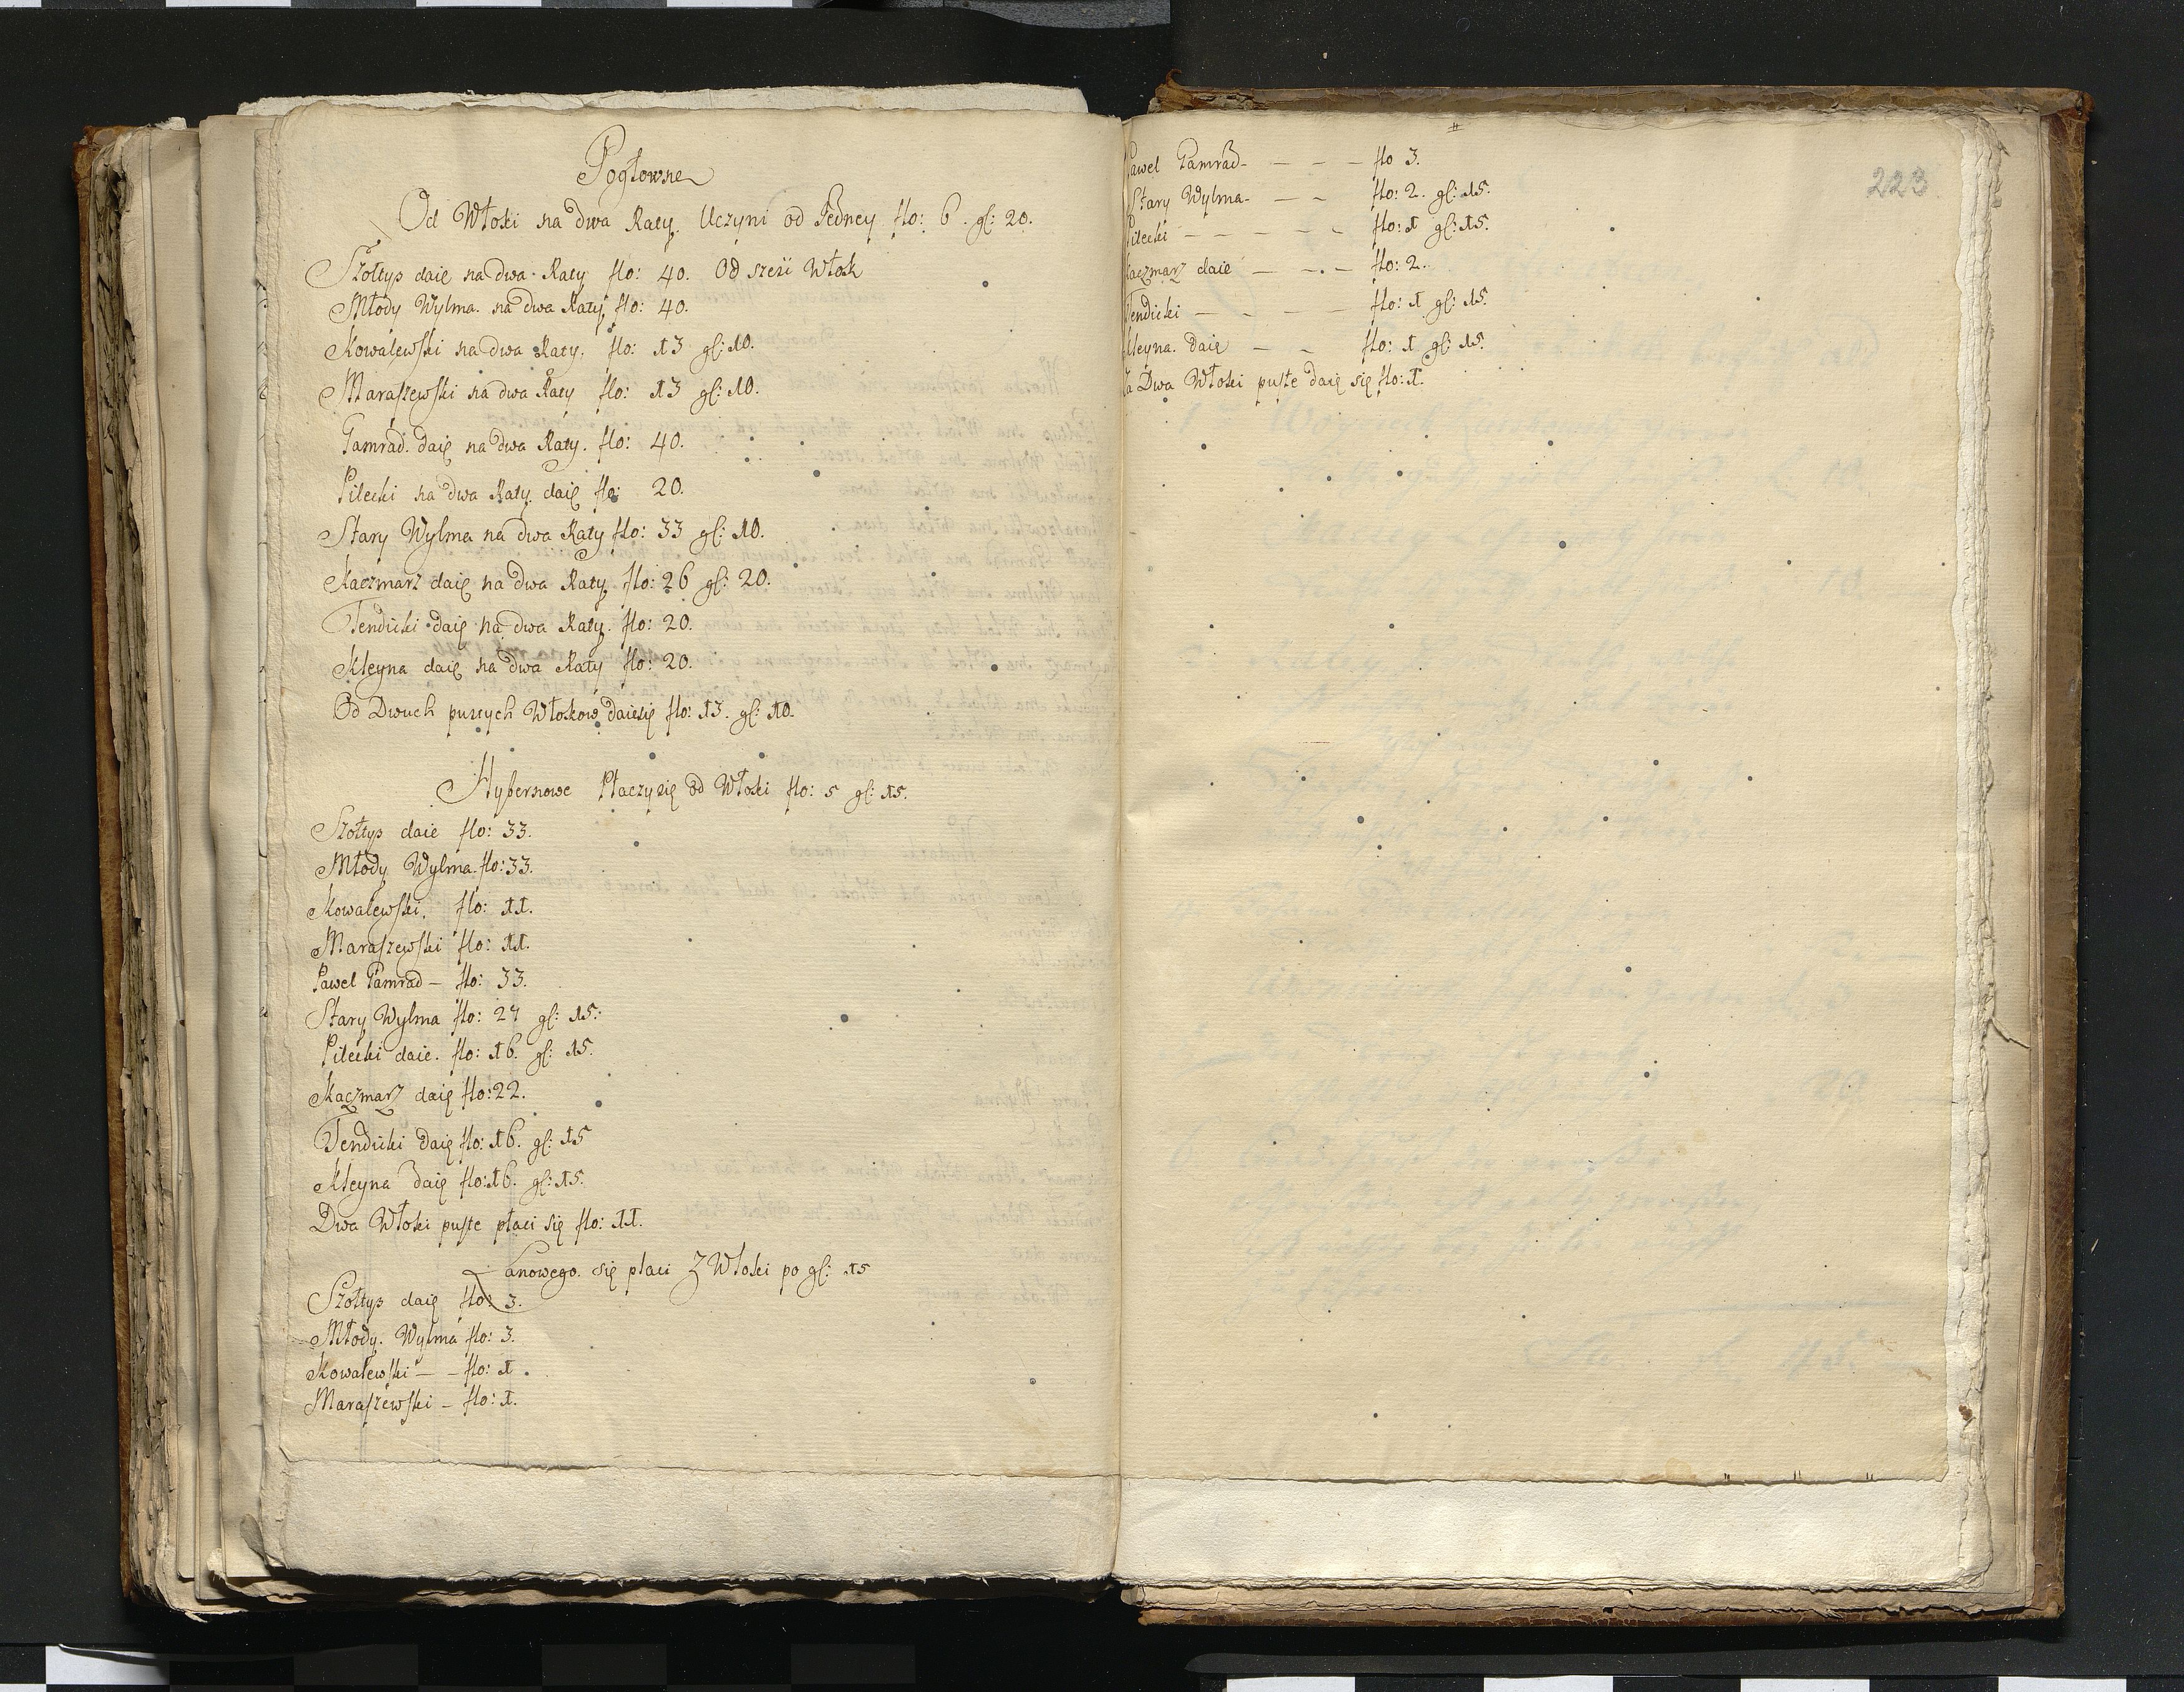 Pogłowne
Od Włoki na dwa Raty. Uczyni od Jedney flo: 6. gl: 20.
Szołtys daie na dwa Raty flo: 40. Od sześi Włok
Młody Wylma. na dwa Raty, flo: 40.
Kowalewski na dwa Raty. flo: 13 gl: 10.
Maraszewski na dwa Raty flo: 13 gl: 10.
Gamrad. daię na dwa Raty. flo: 40.
Pilecki na dwa Raty. daię flo: 20.
Stary Wylma na dwa Raty flo: 33 gl: 10.
Kaczmarz daię na dwa Raty. flo: 26 gl: 20.
Tendicki daię na dwa Raty. flo: 20.
Kleyna daię na dwa Raty flo: 20.
Od Dwuch pustych Włokow daie się flo: 13. gl: 10.
Hybernowe Płaczy się od Włoki flo: 5 gl: 15.
Szołtys daie flo: 33.
Młody Wylma. flo: 33.
Kowalewski. flo: 11.
Maraszewski flo: 11.
Pawel Gamrad – flo: 33.
Stary Wylma flo: 27 gl: 15:
Pilecki daie. flo: 16. gl: 15.
Kaczmarz daię flo: 22.
Tendicki daię flo: 16. gl: 15
Kleyna daię flo: 16. gl: 15.
Dwa Włoki puste płaci się flo: 11.
Łanowego. się płaci Z Włoki po gl: 15
Szołtys daię flo: 3.
Młody. Wylma flo: 3.
Kowalewski – – flo: 1.
Maraszewski – flo: 1.
223
Pawel Gamrad – – – – flo 3.
Stary Wylma – – – flo: 2. gl: 15.
Pilecki – – – – – flo: 1 gl: 15.
Kaczmarz daie – – – flo: 2.
Tendicki – – – – flo: 1 gl: 15.
Kleyna. daię – – flo: 1 gl: 15.
Za Dwa Włoki puste daię się flo: 1.